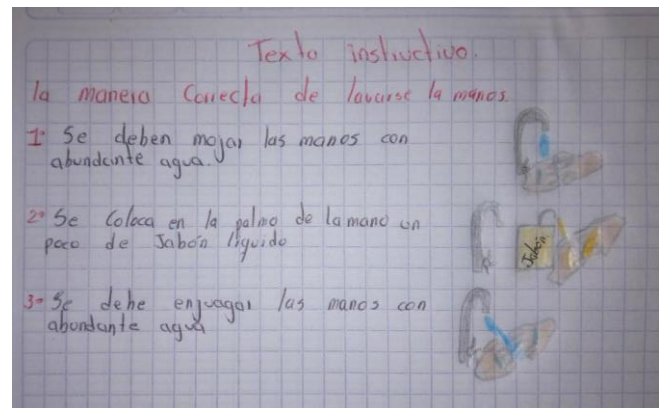 Texto instructivo.
la manera Correcta de lavarse la manos.
1° Se deben mojar las manos con
abundante agua.
2° Se Coloca en la palma de la mano un
poco de Jabón líquido
Jabón
3° Se debe enjuagar las manos con
abundante agua